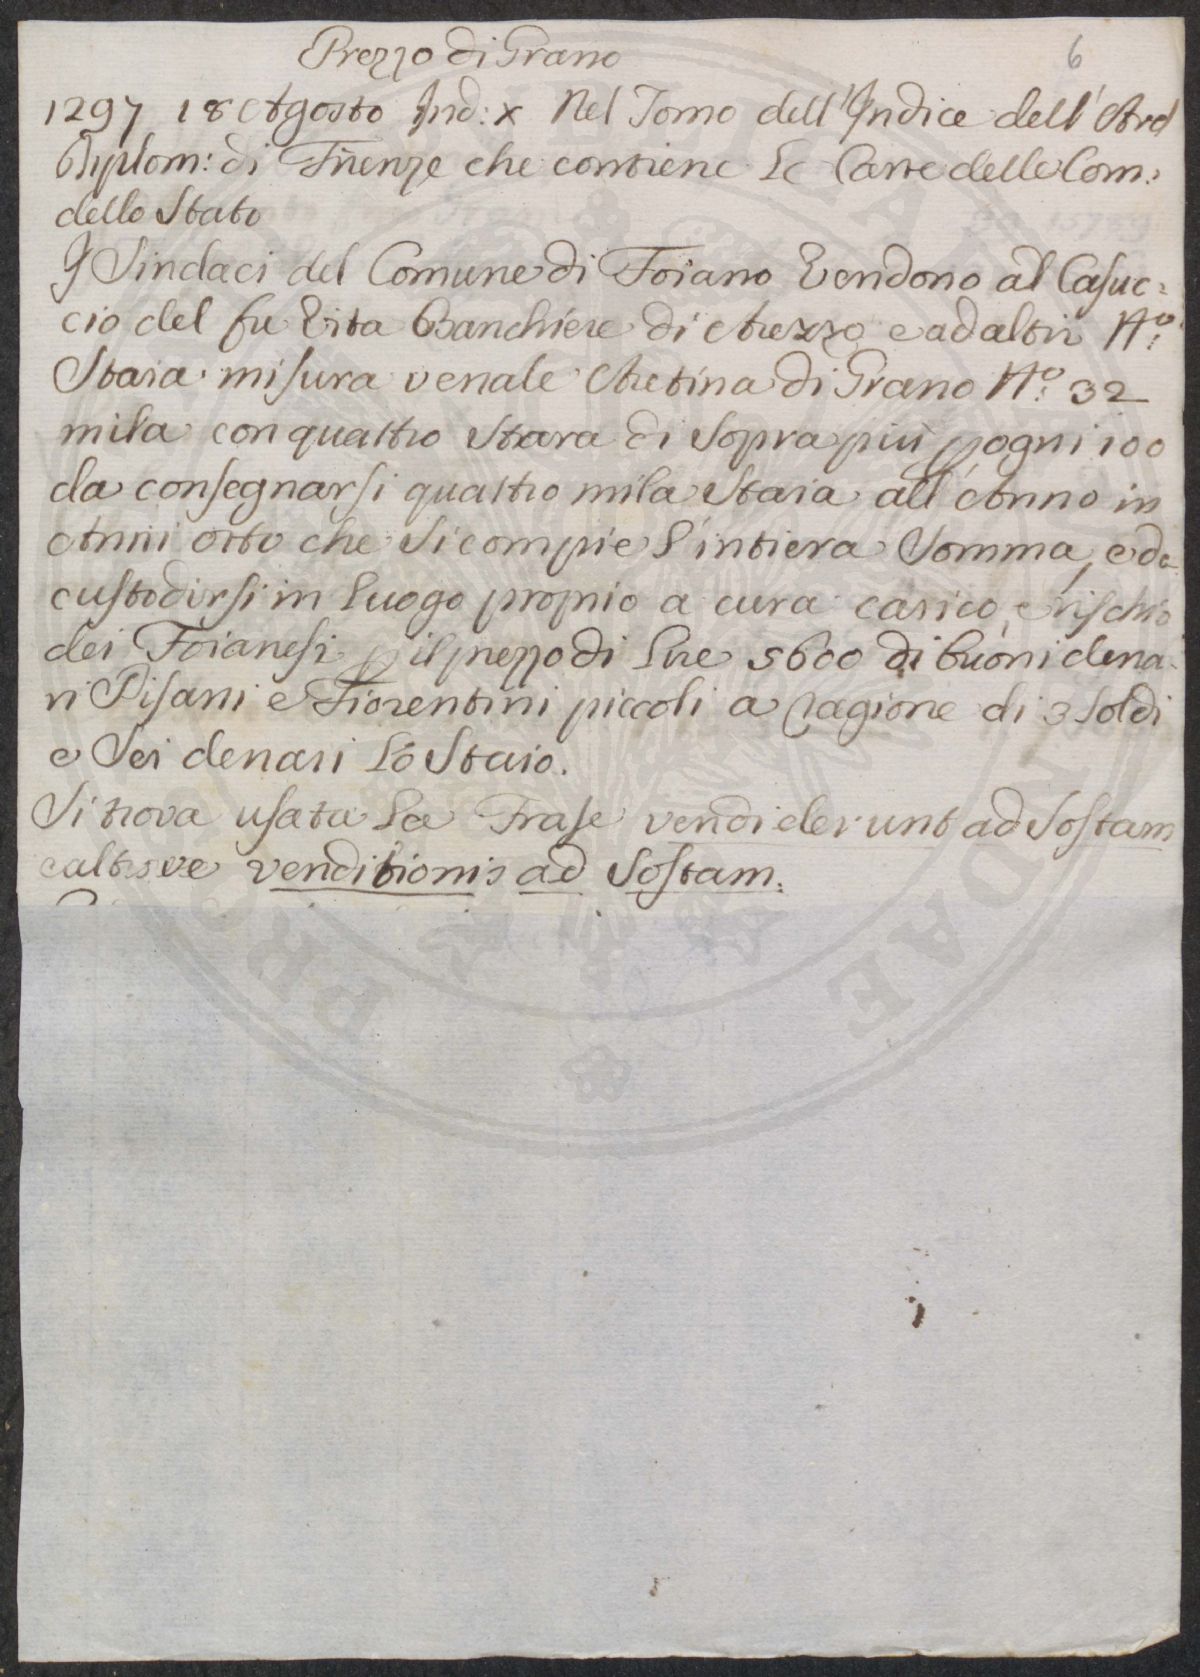 Prezzo di Grano
6
1297 18 Agosto Ind: x Nel Tomo dell'Indice dell'Arcl
Diplom: di Firenze che contiene le Carte delle Com:
dello Stato
I Sindaci del Comune di Foiano Vendono al Casuc=
cio del fu Vita Banchiere di Arezzo e ad altri N.º
Staia misura venale Aretina di Grano N.º 32
mila con quattro Staia di Sopra più p ogni 100
da consegnarsi quattro mila Staia all'Anno in
Anni otto che Si compie l'intiera Somma, e da
custodirsi in luogo proprio a cura carico, e rischio
dei Foianesi p il prezzo di lire 5600 di buoni dena=
ri Pisani e Fiorentini piccoli a ragione di 3 Soldi
e Sei denari lo Staio.
Si trova usata la Frase vendiderunt ad Sostam
e altrove venditionis ad Sostam: